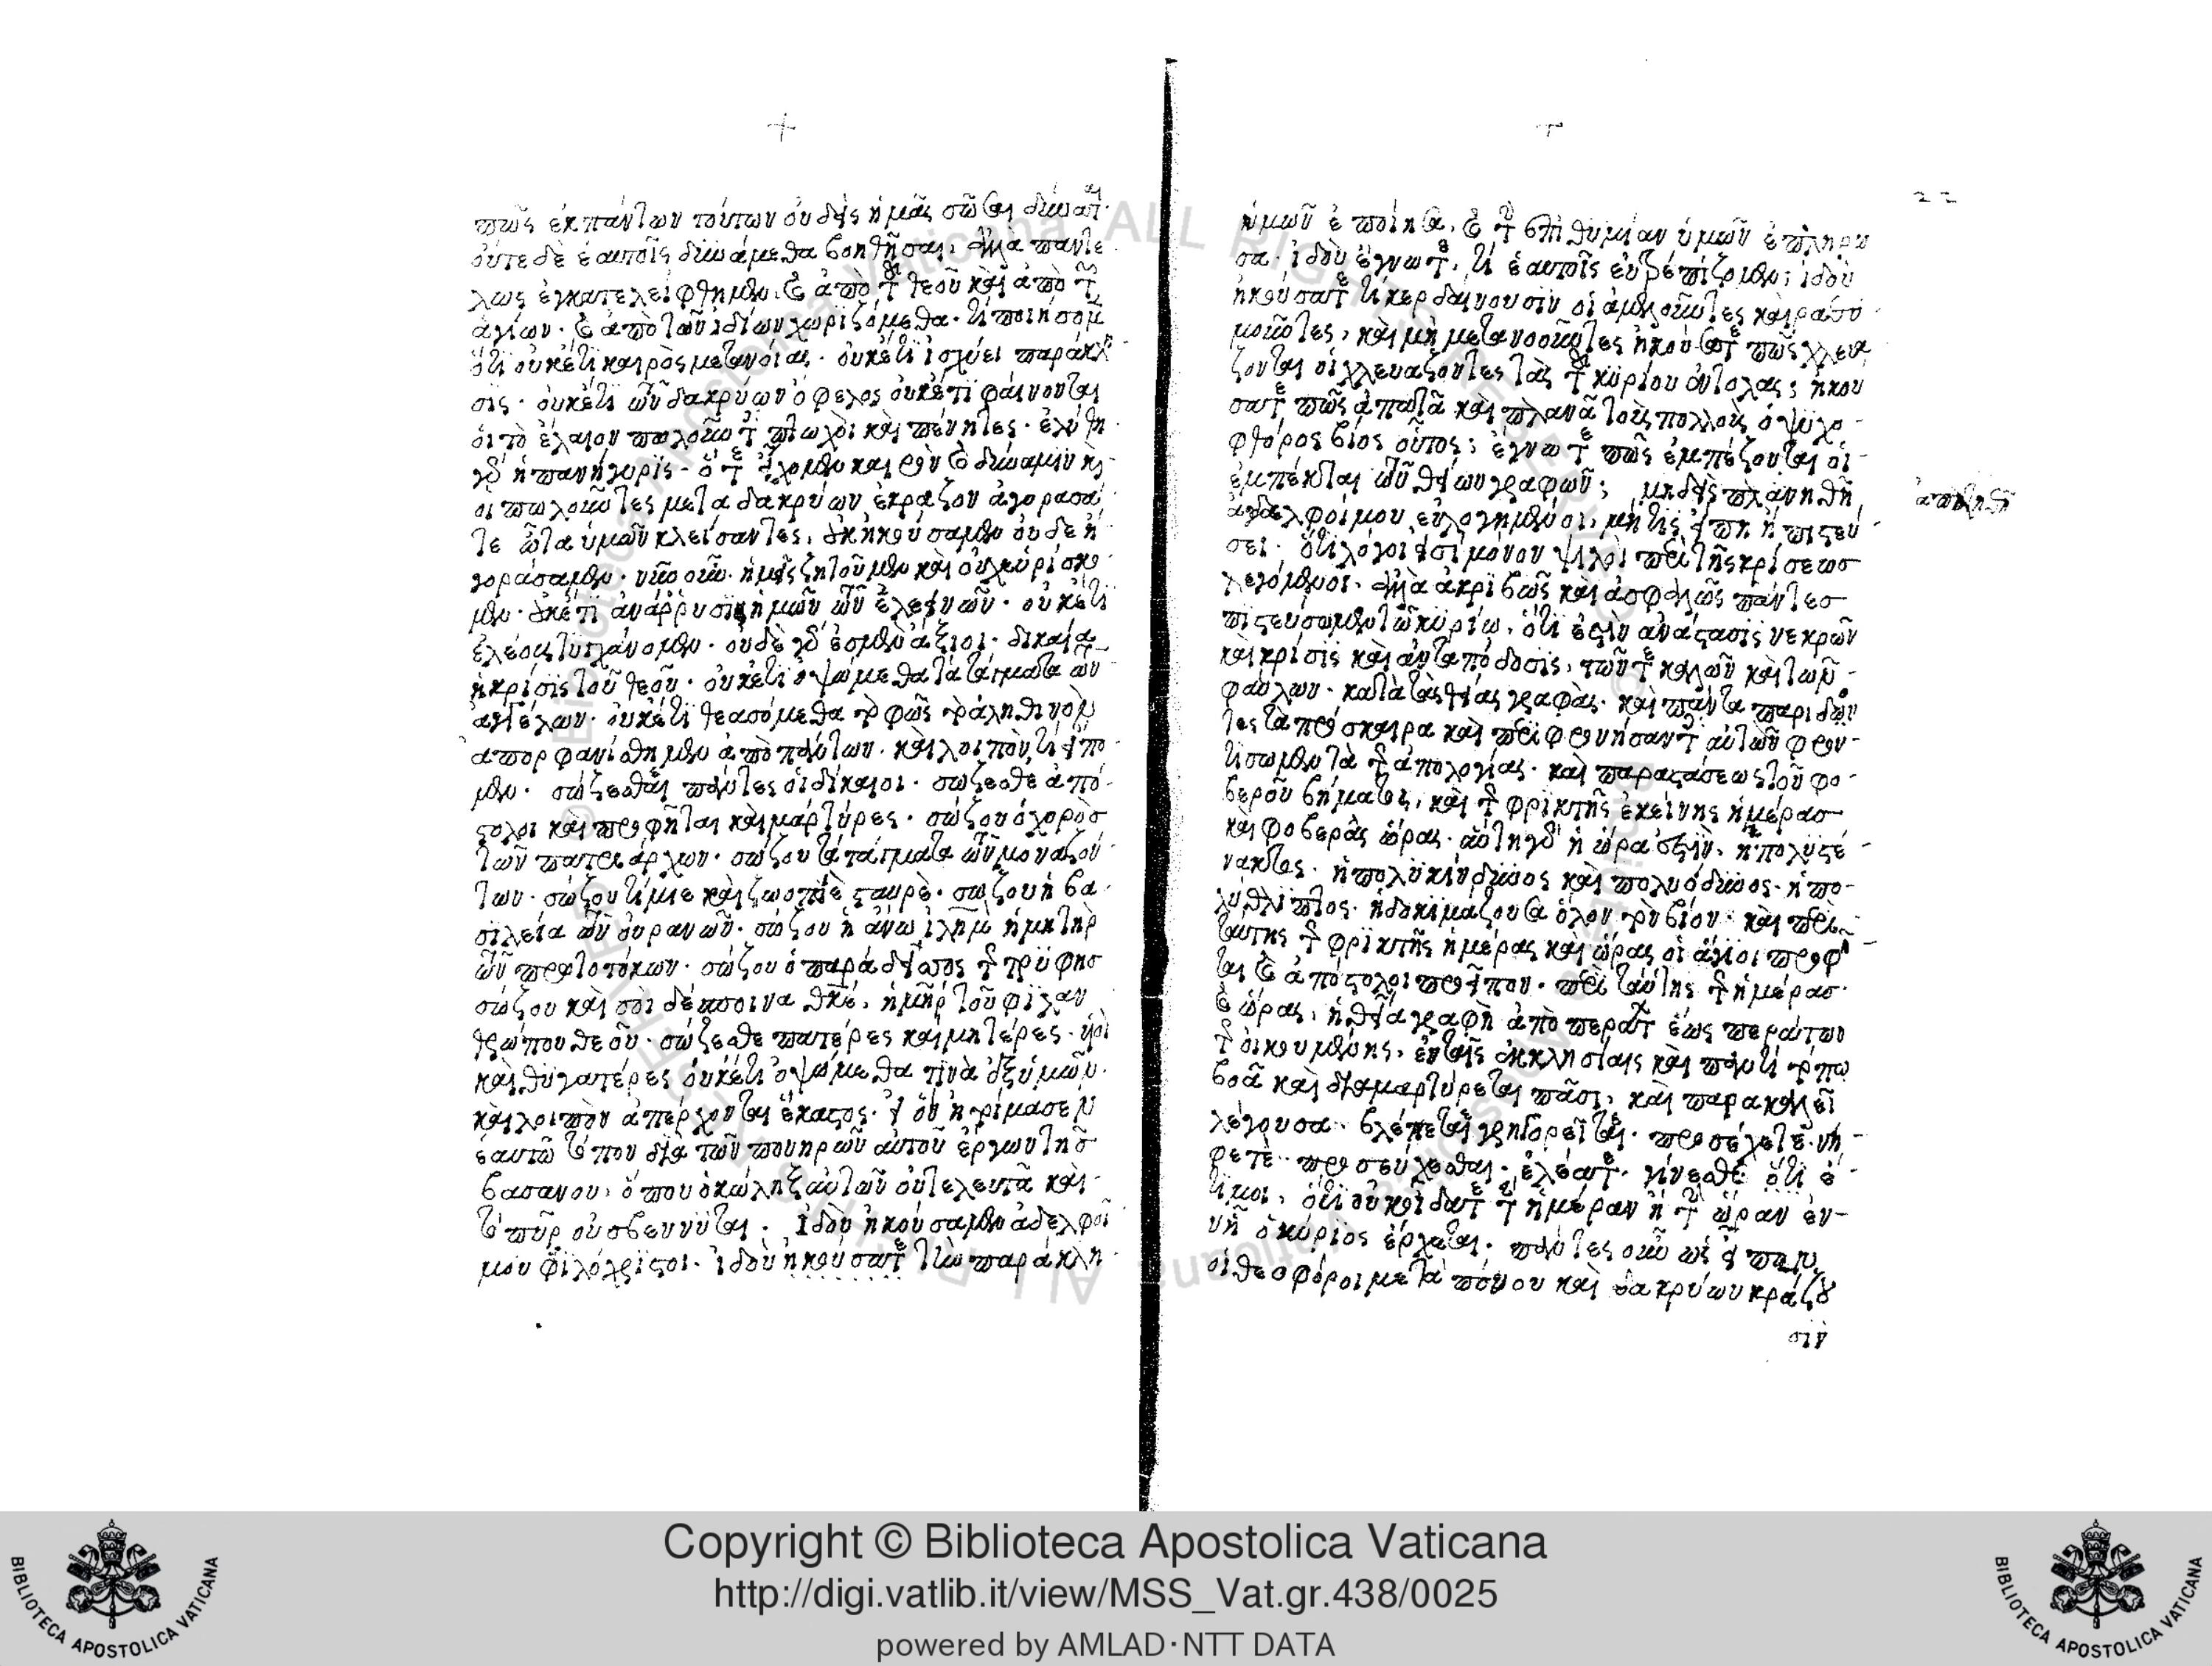 πῶς ἐκ πάντων τούτων οὐδεὶς ἡμᾶς σῶσαι δύναται·
οὔτε δὲ ἑαυτοῖς δυνάμεθα βοηθῆσαι, ἀλλὰ παντε
λῶς ἐγκατελείφθημεν, καὶ ἀπὸ τοῦ θεοῦ καὶ ἀπὸ τῶν
ἁγίων· καὶ ἀπὸ τῶν ἰδίων χωριζόμεθα· τί ποιήσομεν
ὅτι οὐκέτι καιρὸς μετανοίας· οὐκέτι ἰσχύει παράκλη
σις· οὐκέτι τῶν δακρύων ὄφελος οὐκέτι φαίνονται
οἱ τὸ ἔλαιον πωλοῦντες πτωχοὶ καὶ πένητες· ἐλύθη
γὰρ ἡ πανήγυρις· ὅτε εἴχομεν καιρὸν καὶ δύναμιν καὶ
οἱ πωλοῦντες μετὰ δακρύων ἔκραζον ἀγοράσα
τε ὦτα ὑμῶν κλείσαντες, οὐκ ἠκούσαμεν οὐδὲ ἠ
γοράσαμεν· νῦν οὖν ἡμεῖς ζητοῦμεν καὶ οὐχ εὑρίσκο
μεν· οὐκέτι ἀνάρρυσις ἡμῶν τῶν ἐλεεινῶν· οὐκέτι
ἐλέους τυγχάνομεν· οὐδὲ γὰρ ἐσμὲν ἄξιοι· δικαία
ἡ κρίσις τοῦ θεοῦ· οὐκέτι ὀψώμεθα τὰ τάγματα τῶν
ἀγγέλων· οὐκέτι θεασόμεθα τὸ φῶς τὸ ἀληθινὸν
ἀπορφανίσθημεν ἀπὸ πάντων· καὶ λοιπὸν, τί εἴπο
μεν· σώζεσθαι πάντες οἱ δίκαιοι· σώζεσθε ἀπό
στολοι καὶ προφῆται καὶ μάρτυρες· σώζου ὁ χορὸς
τῶν πατριάρχων· σώζου τὰ τάγματα τῶν μοναζόν
των· σώζου τίμιε καὶ ζωοποιὲ σταυρέ· σώζου ἡ βα
σιλεία τῶν οὐρανῶν· σώζου ἡ ἄνω ιλημ ἡ μήτηρ
τῶν πρωτοτόκων· σώζου ὁ παράδεισος τῆς τρυφῆς
σώζου καὶ σοὶ δέσποινα θκε, ἡ μηρ τοῦ φιλαν
θρώπου θεοῦ· σώζεσθε πατέρες καὶ μητέρες· υἱοὶ
καὶ θυγατέρες οὐκέτι ὀψώμεθα τινὰ ἐξ ὑμῶν·
καὶ λοιπὸν ἀπέρχονται ἕκαστος· εἰς ὃν ἡτοίμασεν
ἑαυτῶ τόπον διὰ τῶν πονηρῶν αὐτοῦ ἔργων τῆς
βασάνου, ὅπου ὁ σκώληξ αὐτῶν οὐ τελευτᾶ καὶ
τὸ πῦρ οὐ σβέννυται· Ἰδοὺ ἠκούσαμεν ἀδελφοί
μου φιλόχριστοι· ἰδοὺ ἠκούσατε τὴν παράκλη
22
ὑμῶν ἐποίησα, καὶ τὴν ἐπιθυμίαν ὑμῶν ἐπλήρω
σα· ἰδοὺ ἔγνωτε, τί ἑαυτοῖς εὐτρεπίζομεν; ἰδοὺ
ἠκούσατε τί κερδαίνουσιν οἱ ἀμελοῦντες καὶ ῥαθυ
μοῦντες, καὶ μὴ μετανοοῦντες ἠκούσατε πῶς χλευά
ζονται οἱ χλευάζοντες τὰς τοῦ κυρίου ἐντολάς; ἠκού
σατε πῶς ἀπατᾶ καὶ πλανᾶ τοὺς πολλοὺς ὁ ψυχο
φθόρος βίος οὗτος; ἔγνωτε πῶς ἐμπέζονται οἱ
ἐμπέκται τῶν θείων γραφῶν; μηδεὶς πλανηθῆ
ἀδελφοί μου εὐλογημένοι, μή τις εἴπη ἢ πιστεύ
σει· ὅτι λόγοι εἰσὶ μόνον ψιλοὶ περὶ τῆς κρίσεως
λεγόμενοι, ἀλλὰ ἀκριβῶς καὶ ἀσφαλῶς πάντες
πιστεύσωμεν τῶ κυρίω, ὅτι ἐστὶν ἀνάστασις νεκρῶν
καὶ κρίσις καὶ ἀνταπόδοσις, τῶν τε καλῶν καὶ τῶν
φαύλων· κατὰ τὰς θείας γραφὰς· καὶ πάντα παριδόν
τες τὰ πρόσκαιρα καὶ περιφρονήσαντες αὐτῶν φρον
τίσωμεν τὰ τῆς ἀπολογίας· καὶ παραστάσεως τοῦ φο
βεροῦ βήματος, καὶ τῆς φρικτῆς ἐκείνης ἡμέρας
καὶ φοβερᾶς ὥρας· αὕτη γὰρ ἡ ὥρα ἐστὶν, ἡ πολυστέ
νακτος· ἡ πολυκίνδυνος καὶ πολυόδυνος· ἡ πο
λύθλιπτος· ἡ δοκιμάζουσα ὅλον τὸν βίον· καὶ περὶ
ταύτης τῆς φρικτῆς ἡμέρας καὶ ὥρας οἱ ἅγιοι προφῆ
ται καὶ ἀπόστολοι προεῖπον· περὶ ταύτης τῆς ἡμέρας
καὶ ὥρας, ἡ θεία γραφὴ ἀπὸ περάτων ἕως περάτων
τῆς οἰκουμένης, ἐν ταῖς ἐκκλησίαις καὶ παντὶ τόπω
βοᾶ καὶ διαμαρτύρεται πᾶσι, καὶ παρακαλεῖ
λέγουσα· βλέπεται γρηγορεῖται· προσέχετε· νή
φετε· προσεύχεσθαι· ἐλεᾶτε· γίνεσθε ὅτι ἕ
τιμοι, ὅτι οὐκ οἴδατε τὴν ἡμέραν ἢ τὴν ὥραν ἐν
υἷ ὁ κύριος ἔρχεται·
οἱ θεοφόροι μετὰ πόνου καὶ δακρύων κράζου
σιν
Copyright © Biblioteca Apostolica Vaticana
http://digi.vatlib.it/view/MSS_Vat.gr.438/0025
powered by AMLAD·NTT DATA
BIBLIOTECA APOSTOLICA VATICANA
BIBLIOTECA APOSTOLICA VATICANA